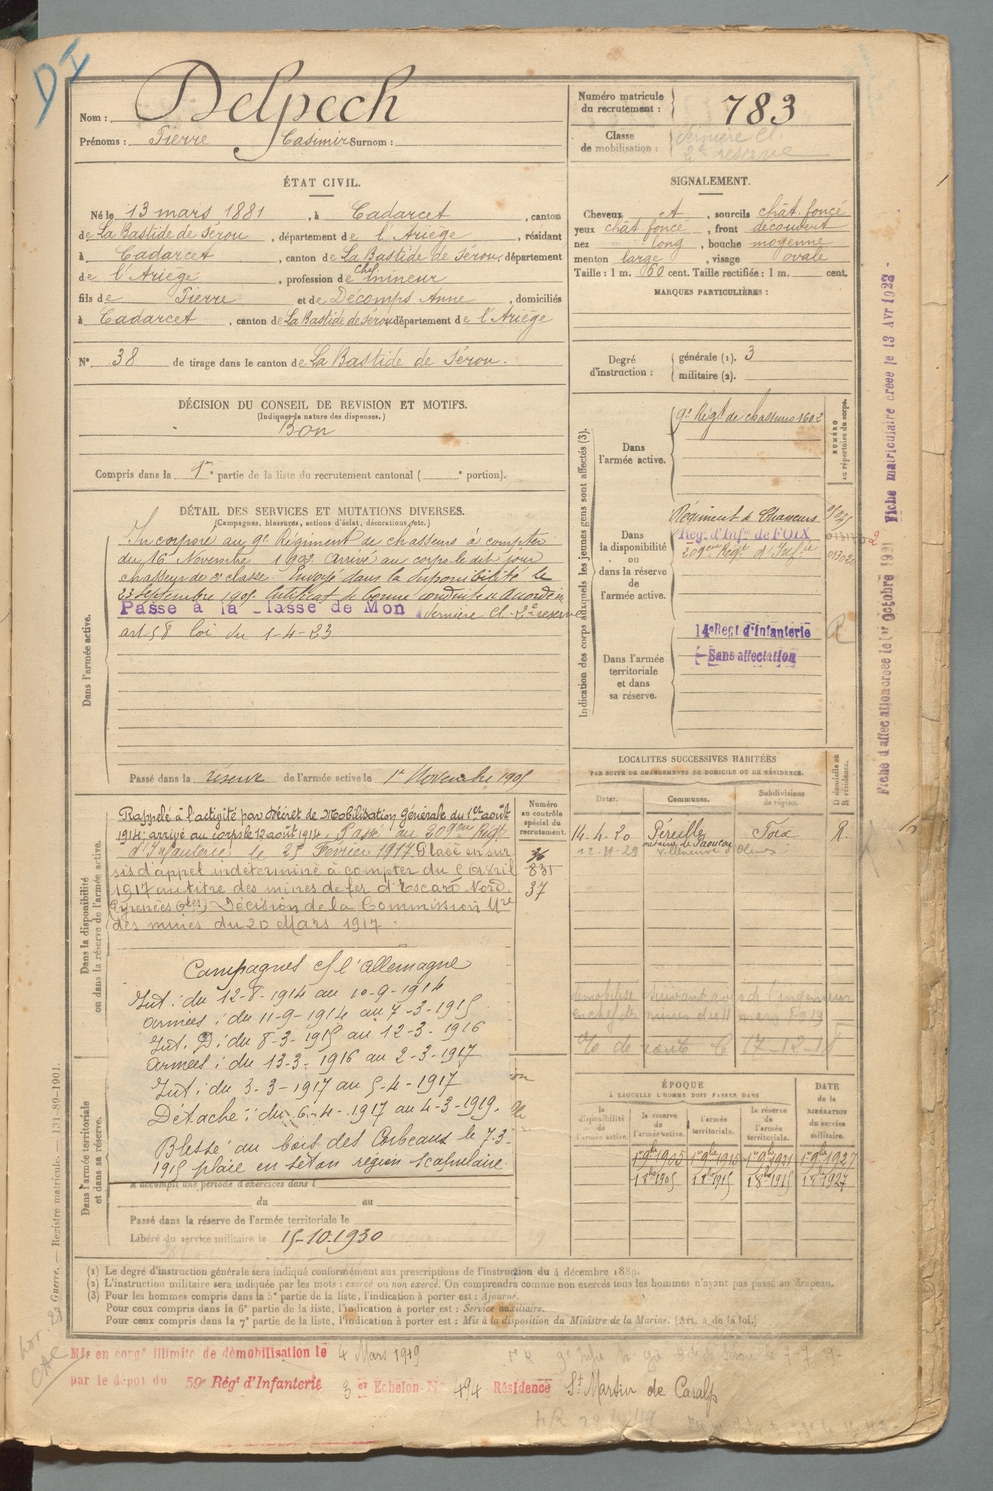 DI
Nom : Delpech
Prénoms : Pierre Casimir Surnom :
Numéro matricule du recrutement : 783
Classe de mobilisation : dernière Cl.
2e réserve
ÉTAT CIVIL.
Né le 13 mars 1881, à Cadarcet, canton
de La Bastide de Sérou, département de l'Ariège, résidant
à Cadarcet, canton de La Bastide de Sérou, département
de l'Ariège, profession de mineur
fils de Pierre et de Décomps Anne, domiciliés
à Cadarcet, canton de La Bastide de Sérou, département de l'Ariège
N° 38 de tirage dans le canton de La Bastide de Sérou.
SIGNALEMENT.
Cheveux et, sourcils chât. foncé
yeux chât. foncé, front découvert
nez long, bouche moyenne
menton large, visage ovale
Taille : 1 m. 60 cent. Taille rectifiée : 1 m. cent.
MARQUES PARTICULIÈRES :
Degré d'instruction : générale (1). 3
militaire (2).
DÉCISION DU CONSEIL DE REVISION ET MOTIFS.
(Indiquer la nature des dispenses.)
Bon
Compris dans la 1re partie de la liste du recrutement cantonal ( e portion).
DÉTAIL DES SERVICES ET MUTATIONS DIVERSES.
(Campagnes, blessures, actions d'éclat, décorations, etc.)
Dans l'armée active.
Incorporé au 9e Régiment de chasseurs à compter
du 16 Novembre 1902 arrivé au corps le dit jour
chasseur de 2e classe. Envoyé dans la disponibilité le
23 Septembre 1905. Certificat de bonne conduite a accordé
Passé à la Classe de Mon dernière Cl - 2e réserve
art 58 loi du 1-4-23
Passé dans la réserve de l'armée active le 1er Novembre 1905
Indication des corps auxquels les jeunes gens sont affectés (3).
NUMÉRO au répertoire du corps.
Dans l'armée active.
9e Régt de chasseurs 1602
Dans la disponibilité ou dans la réserve de l'armée active.
Régiment de Chasseurs
Rég. d'Infie de FOIX
209eme Régt d'Infie
Dans l'armée territoriale et dans sa réserve.
14e Regt d'Infanterie
Sans affectation
R
Fiche d'affectation créée le 1er octobre 1921
Fiche matriculaire créée le 13 Avr 1922
Dans la disponibilité ou dans la réserve de l'armée active.
Numéro au contrôle spécial du recrutement.
36
831
37
Rappelé à l'activité par décret de Mobilisation Générale du 1er août
1914, arrivé au corps le 12 août 1914. Passé au 209eme Régt
d'Infanterie le 25 Février 1917. Placé en sur
sis d'appel indéterminé à compter du 5 avril
1917 au titre des mines de fer d'Escaro Nord
(Pyrénées Oles) Décision de la Commission Mre
des mines du 20 Mars 1917.
Campagnes c/ l'Allemagne
Int : du 12-8-1914 au 10-9-1914
Armées : du 11-9-1914 au 7-3-1915
Int. B : du 8-3-1915 au 12-3-1916
Armées : du 13-3-1916 au 2-3-1917
Int : du 3-3-1917 au 5-4-1917
Détaché : du 6-4-1917 au 4-3-1919.
Blessé au bois des Corbeaux le 7-3-
1915 plaie en séton région scapulaire
Dans l'armée territoriale et dans sa réserve.
A accompli une période d'exercices dans l
du au
Passé dans la réserve de l'armée territoriale le
Libéré du service militaire le 15-10-1930
LOCALITÉS SUCCESSIVES HABITÉES
PAR SUITE DE CHANGEMENTS DE DOMICILE OU DE RÉSIDENCE.
Dates. Communes. Subdivisions de région. D domicile ou R résidence.
14.4.20 Péreille Foix R.
12-11-29 Villeneuve d'Olmes
démobilisé suivant avis de l'ingénieur
en chef des mines du 11 mars 1919
17-12-18
ÉPOQUE
À LAQUELLE L'HOMME DOIT PASSER DANS
la disponibilité de l'armée active. la réserve de l'armée active. l'armée territoriale. la réserve de l'armée territoriale.
DATE de la LIBÉRATION du service militaire.
1er 9bre 1905 1er 9bre 1915 1er 9bre 1921 1er 9bre 1927
(1) Le degré d'instruction générale sera indiqué conformément aux prescriptions de l'instruction du 4 décembre 1889.
(2) L'instruction militaire sera indiquée par les mots : exercé ou non exercé. On comprendra comme non exercés tous les hommes n'ayant pas passé au drapeau.
(3) Pour les hommes compris dans la 5e partie de la liste, l'indication à porter est : Ajourné.
Pour ceux compris dans la 6e partie de la liste, l'indication à porter est : Service auxiliaire.
Pour ceux compris dans la 7e partie de la liste, l'indication à porter est : Mis à la disposition du Ministre de la Marine. (Art. 4 de la loi.)
Guerre. — Registre matricule. — 131-89-1901.
Mis en congé illimité de démobilisation le 4 Mars 1919
par le dépôt du 59e Régt d'Infanterie 3 er Echelon N° 494 Résidence St Martin de Caralp